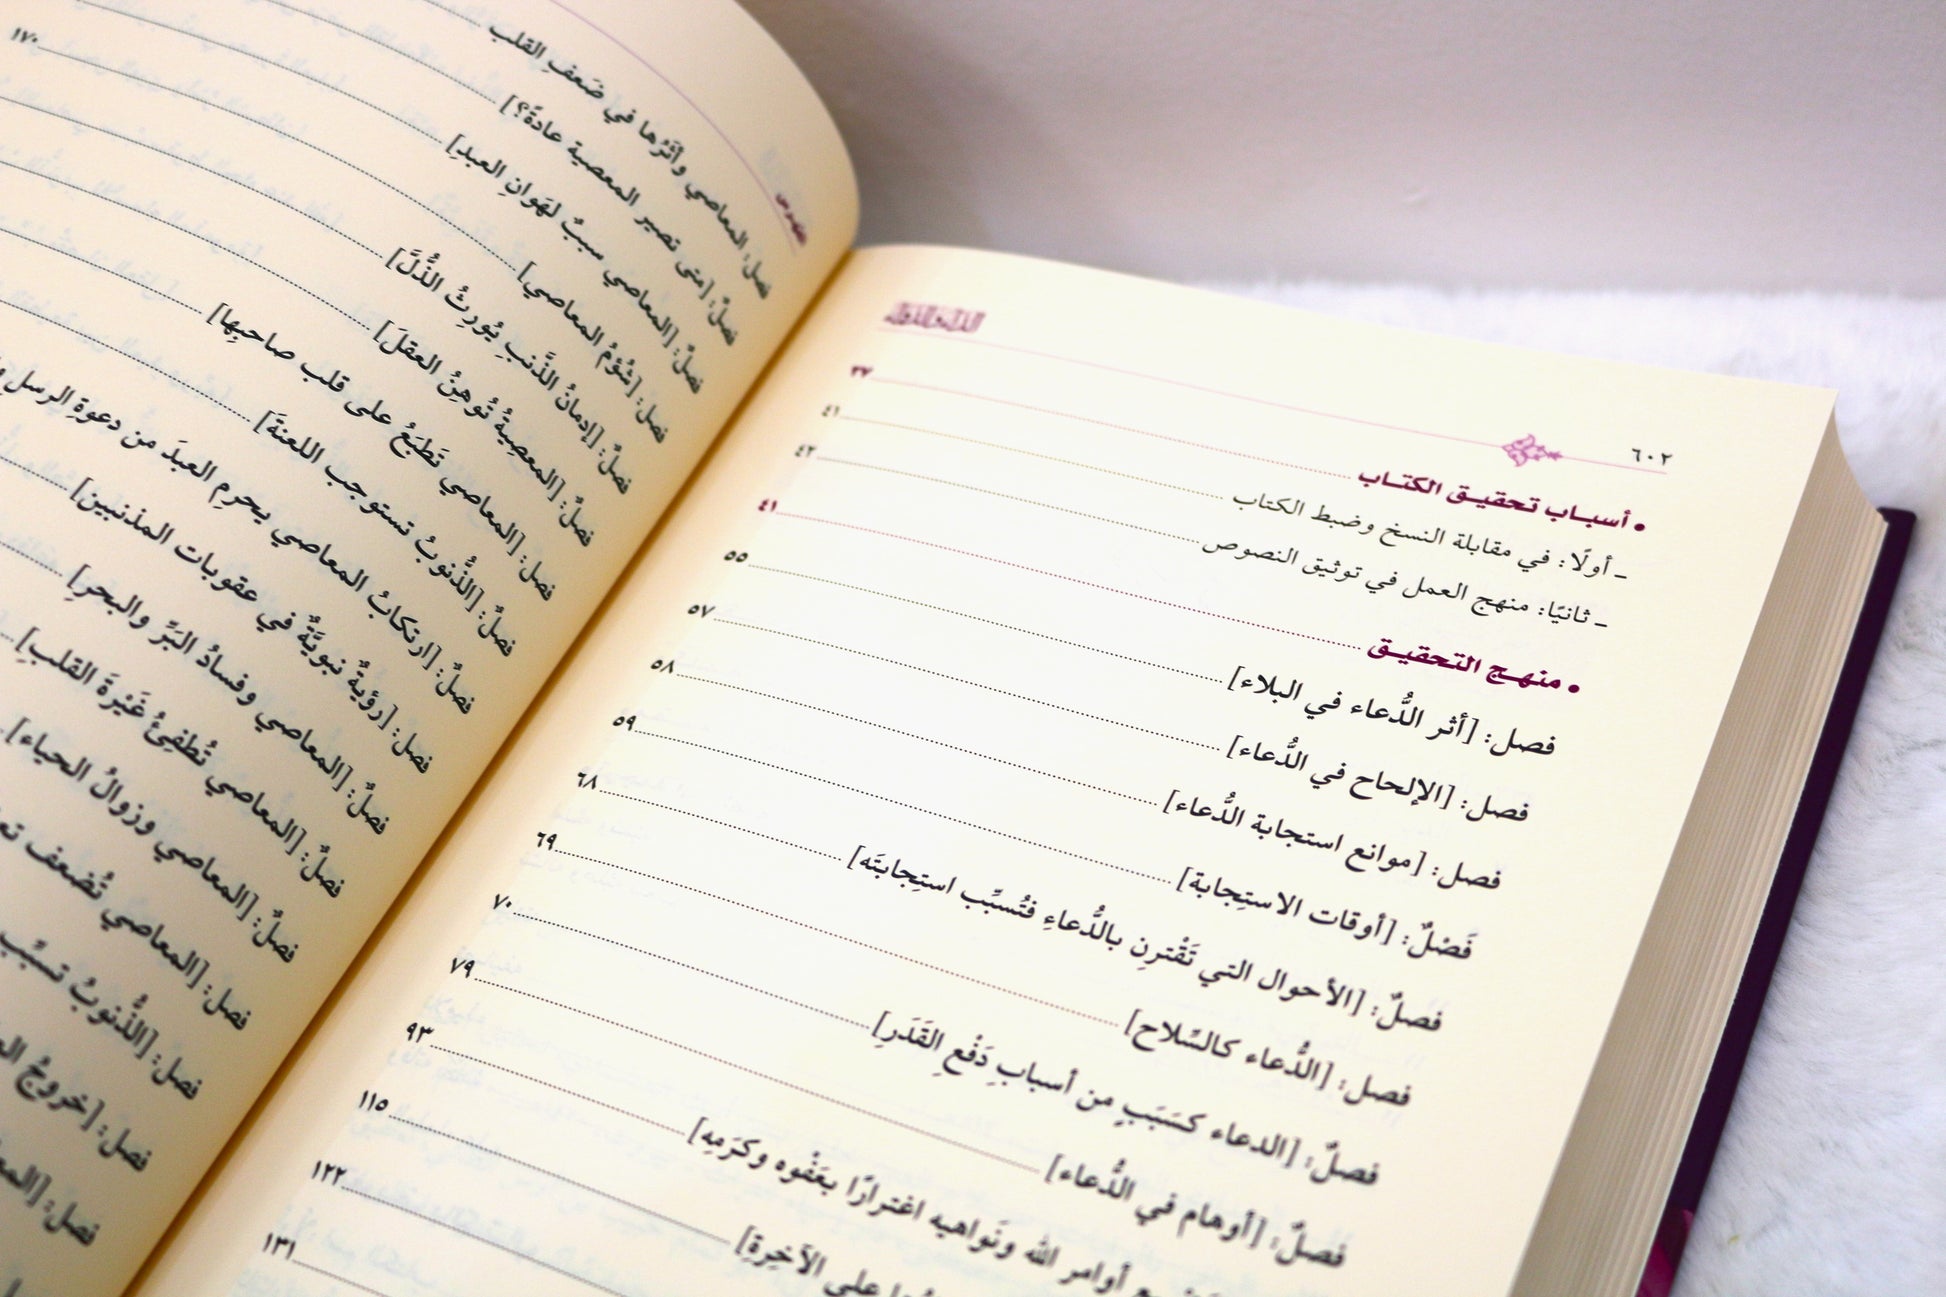 ٦٠٢
الداء والدواء
• أسباب تحقيق الكتاب ٣٧
ـ أولًا: في مقابلة النسخ وضبط الكتاب ٤١
ـ ثانيًا: منهج العمل في توثيق النصوص ٤٢
• منهج التحقيق ٤١
فصل: [أثر الدُّعاء في البلاء] ٥٥
فصل: [الإلحاح في الدُّعاء] ٥٧
فصل: [موانع استجابة الدُّعاء] ٥٨
فَصْلٌ: [أوقات الاستِجابة] ٥٩
فصلٌ: [الأحوال التي تَقْترِن بالدُّعاءِ فتُسبِّب استِجابتَه] ٦٨
فصل: [الدُّعاء كالسِّلاح] ٦٩
فصلٌ: [الدعاء كسَبَبٍ من أسبابِ دَفْعِ القَدَرِ] ٧٠
فصلٌ: [أوهام في الدُّعاء] ٧٩
أوامر الله ونَواهيه اغترارًا بعَفْوه وكرَمِه] ٩٣
على الآخِرةِ] ١١٥
١٢٢
١٣١
الفهرس
فصل: المعاصي وأثرُها في ضَعفِ القلب
فصلٌ: [متى تصير المعصية عادةً؟] ١٧٠
فصلٌ: [المعاصي سببٌ لهَوانِ العبدِ]
فصل: [شُؤمُ المعاصي]
فصلٌ: [إدمانُ الذَّنبِ يُورِثُ الذُّلَّ]
فصلٌ: [المعصِيةُ تُوهِنُ العقلَ]
فصل: [المعاصي تَطبَعُ على قلب صاحبِها]
فصلٌ: [الذُّنوبُ تستوجب اللعنةَ]
فصلٌ: [ارتكابُ المعاصي يحرِم العبدَ من دعوةِ الرسلِ
فصل: [رؤيةٌ نبويَّةٌ في عقوبات المذنبين]
فصلٌ: [المعاصي وفسادُ البَرِّ والبحرِ]
فصلٌ: [المعاصي تُطفِئُ غَيْرةَ القلبِ]
فصلٌ: [المعاصي وزوالُ الحياء]
فصل: [المعاصي تُضعف
فصل: [الذُّنوبُ تسبِّب
فصل: [خروجُ
فصل: